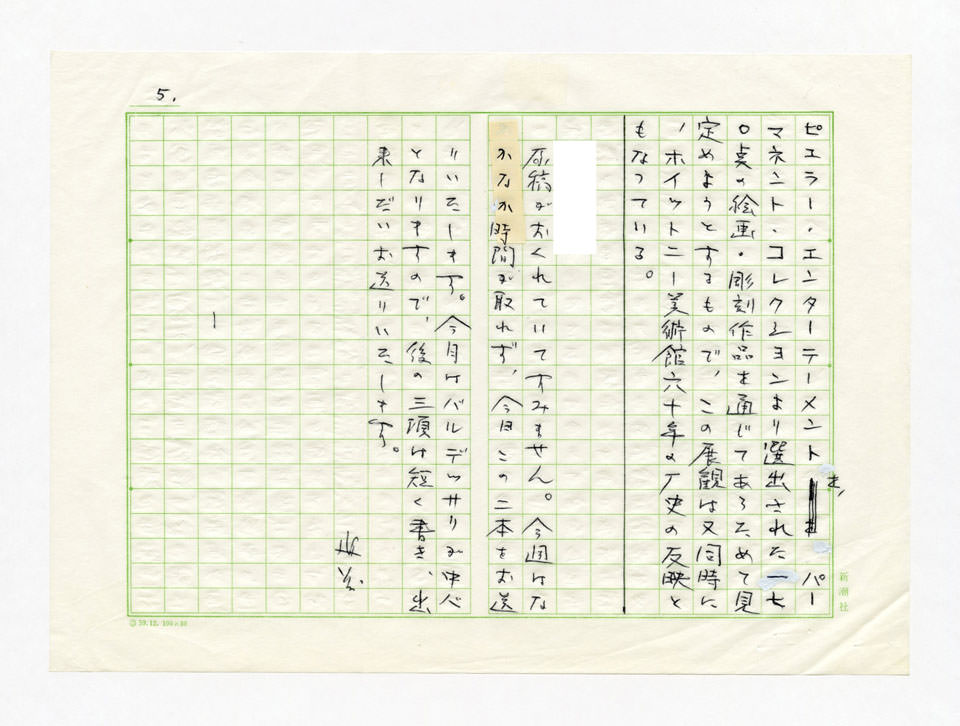 5.
ピエラー・エンターテーメントを、パー
マネント・コレクションより選出された一七
〇点の絵画・彫刻作品を通じてあらためて見
定めようとするもので、この展観は又同時に
、ホイットニー美術館六十年の歴史の反映と
もなっている。
原稿がおくれていてすみません。今週はな
かなか時間が取れず、今日この二本をお送
りいたします。今月はバルデッサリが中心
となりますので、後の三項は短く書き、出
来しだいお送りいたします。
新潮社